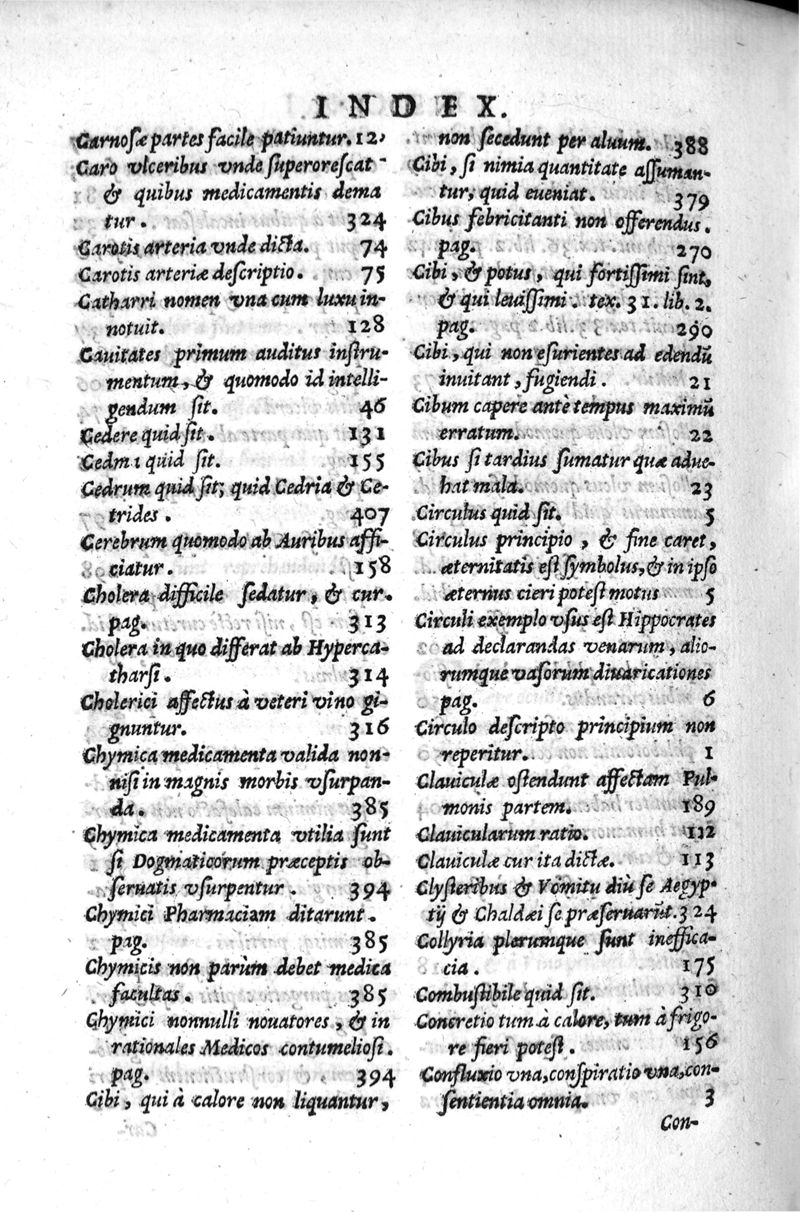 INDEX.
Carnosæ partes facile patiuntur. 12
Caro vlceribus vnde superorescat
& quibus medicamentis dema
tur. 324
Carotis arteria vnde dicta. 74
Carotis arteriæ descriptio. 75
Catharri nomen vna cum luxu in-
notuit. 128
Cauitates primum auditus instru-
mentum, & quomodo id intelli-
gendum sit. 46
Cedere quid sit. 131
Cedm ı quid sit. 155
Cedrum quid sit; quid Cedria & Ce-
trides. 407
Cerebrum quomodo ab Auribus affi-
ciatur. 158
Cholera difficile sedatur, & cur.
pag. 313
Cholera in quo differat ab Hyperca-
tharsi. 314
Cholerici affectus à veteri vino gi-
gnuntur. 316
Chymica medicamenta valida non-
nisi in magnis morbis vsurpan-
da. 385
Chymica medicamenta vtilia sunt
si Dogmaticorum præceptis ob-
seruatis vsurpentur. 394
Chymici Pharmaciam ditarunt.
pag. 385
Chymicis non parùm debet medica
facultas. 385
Chymici nonnulli nouatores, & in
rationales Medicos contumeliosi.
pag. 394
Cibi, qui à calore non liquantur,
non secedunt per aluum. 388
Cibi, si nimia quantitate assuman-
tur, quid eueniat. 379
Cibus febricitanti non offerendus.
pag. 270
Cibi, & potus, qui fortissimi sint,
& qui leuissimi. tex. 31. lib. 2.
pag. 290
Cibi, qui non esurientes ad edendū
inuitant, fugiendi. 21
Cibum capere antè tempus maximū
erratum. 22
Cibus si tardius sumatur quæ adue-
hat mala. 23
Circulus quid sit. 5
Circulus principio, & fine caret,
æternitatis est symbolus, & in ipso
æternus cieri potest motus 5
Circuli exemplo vsus est Hippocrates
ad declarandas venarum, alio-
rumque vasorum diuaricationes
pag. 6
Circulo descripto principium non
reperitur. 1
Clauiculæ ostendunt affectam Pul-
monis partem. 189
Clauicularum ratio. 112
Clauiculæ cur ita dictæ. 113
Clysteribus & Vomitu diù se Aegyp-
tij & Chaldæi se præseruarūt. 324
Collyria plerumque sunt ineffica-
cia. 175
Combustibile quid sit. 310
Concretio tum à calore, tum à frigo-
re fieri potest. 156
Confluxio vna, conspiratio vna, con-
sentientia omnia. 3
Con-